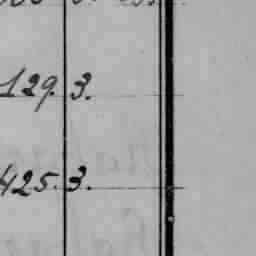 129. 3.
425. 3.